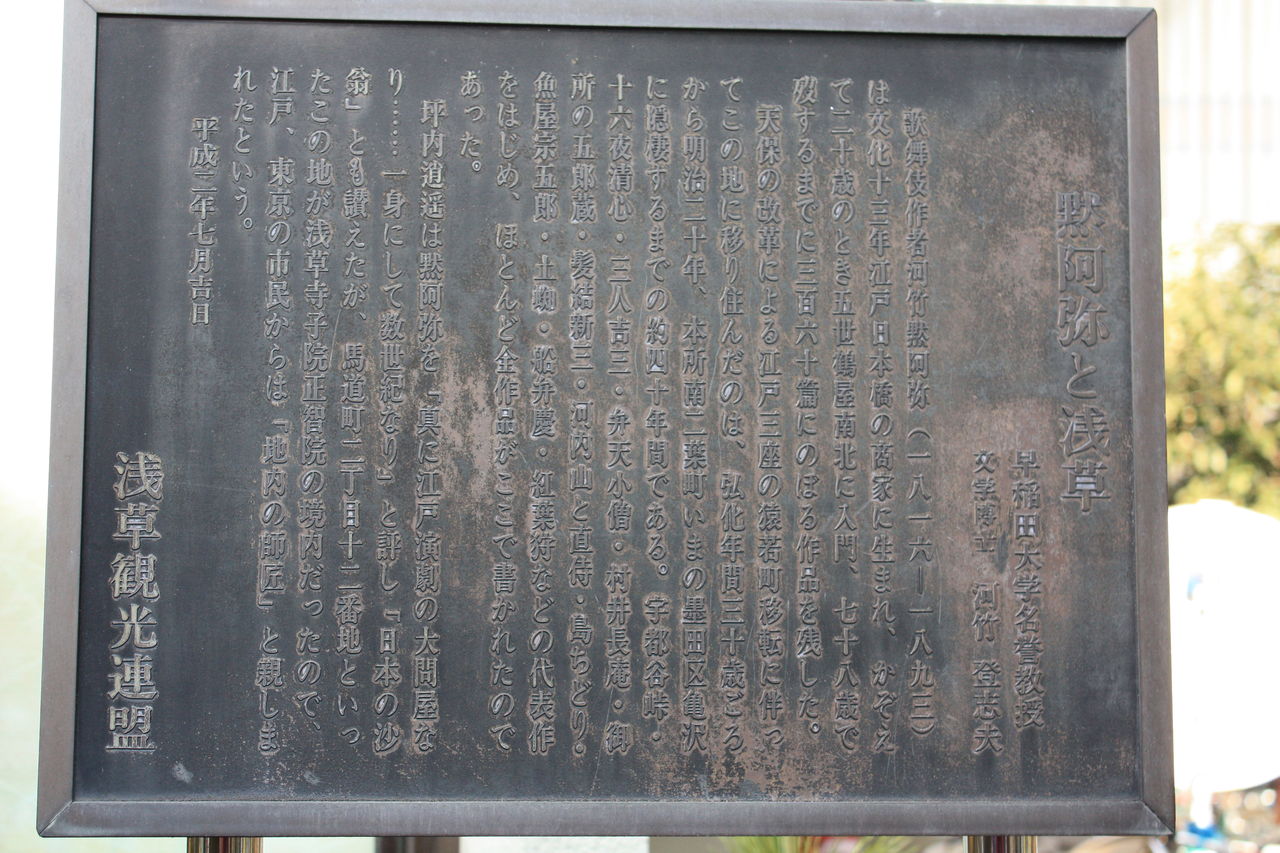 黙阿弥と浅草
早稲田大学名誉教授
文学博士　河竹　登志夫
歌舞伎作者河竹黙阿弥（一八一六―一八九三）
は文化十三年江戸日本橋の商家に生まれ、かぞえ
て二十歳のとき五世鶴屋南北に入門、七十八歳で
歿するまでに三百六十篇にのぼる作品を残した。
天保の改革による江戸三座の猿若町移転に伴っ
てこの地に移り住んだのは、弘化年間三十歳ごろ
から明治二十年、本所南二葉町いまの墨田区亀沢
に隠棲するまでの約四十年間である。宇都谷峠・
十六夜清心・三人吉三・弁天小僧・村井長庵・御
所の五郎蔵・髪結新三・河内山と直侍・島ちどり・
魚屋宗五郎・土蜘・船弁慶・紅葉狩などの代表作
をはじめ、ほとんど全作品がここで書かれたので
あった。
坪内逍遥は黙阿弥を「真に江戸演劇の大問屋な
り……一身にして数世紀なり」と評し「日本の沙
翁」とも讃えたが、馬道町二丁目十二番地といっ
たこの地が浅草寺子院正智院の境内だったので、
江戸、東京の市民からは「地内の師匠」と親しま
れたという。
平成二年七月吉日
浅草観光連盟